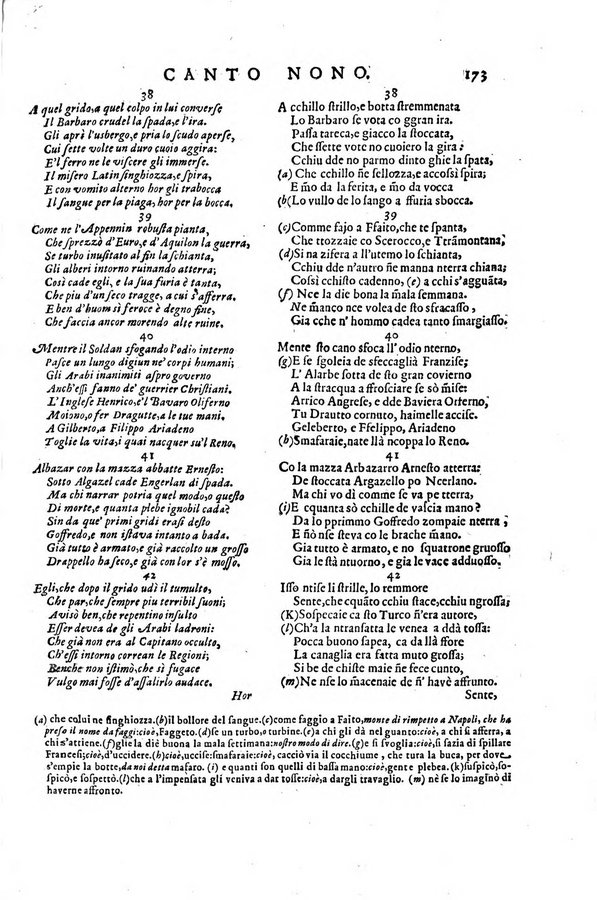 CANTO NONO. 173
38
A quel grido, a quel colpo in lui converse
Il Barbaro crudel la spada, e l'ira.
Gli aprì l'usbergo, e pria lo scudo aperse,
Cui sette volte un duro cuoio aggira:
E'l ferro ne le viscere gli immerse.
Il misero Latin singhiozza, e spira,
E con vomito alterno hor gli trabocca
Il sangue per la piaga, hor per la bocca.
39
Come ne l'Appennin robusta pianta,
Che sprezzò d'Euro, e d'Aquilon la guerra,
Se turbo inusitato al fin la schianta,
Gli alberi intorno ruinando atterra;
Così cade egli, e la sua furia è tanta,
Che piu d'un seco tragge, a cui s'afferra.
E ben d'huom sì feroce è degno fine,
Che faccia ancor morendo alte ruine.
40
Mentre il Soldan sfogando l'odio interno
Pasce un lungo digiun ne' corpi humani;
Gli Arabi inanimiti aspro governo
Anch'essi fanno de' guerrier Christiani.
L'Inglese Henrico, e'l Bavaro Oliferno
Moiono, o fer Dragutte, a le tue mani.
A Gilberto, a Filippo Ariadeno
Toglie la vita, i quai nacquer su'l Reno.
41
Albazar con la mazza abbatte Ernesto:
Sotto Algazel cade Engerlan di spada.
Ma chi narrar potria quel modo, o questo
Di morte, e quanta plebe ignobil cada?
Sin da que' primi gridi erasi desto
Goffredo, e non istava intanto a bada.
Già tutto è armato, e già raccolto un grosso
Drappello ha seco, e già con lor s'è mosso.
42
Egli, che dopo il grido udì il tumulto,
Che par, che sempre piu terribil suoni;
Avisò ben, che repentino insulto
Esser devea de gli Arabi ladroni:
Che già non era al Capitano occulto,
Ch'essi intorno correan le Regioni;
Benche non istimò, che sì fugace
Vulgo mai fosse d'assalirlo audace.
Hor
38
A cchillo strillo, e botta stremmenata
Lo Barbaro se vota co ggran ira.
Passa tareca, e giacco la stoccata,
Che ssette vote no cuoiro la gira:
Cchiu dde no parmo dinto ghie la spata,
(a) Che cchillo ñe sellozza, e accossì spira;
E m̃o da la ferita, e m̃o da vocca
(b(Lo vullo de lo sango a ffuria sbocca.
39
(c)Comme fajo a Ffaito, che te spanta,
Che ttozzaie co Scerocco, e Ttrãmontana;
(d)Si na zifera a ll'utemo lo schianta,
Cchiu dde n'autro ñe manna nterra chiana:
Cossì cchisto cadenno, (e) a cchi s'agguãta,
(f) Nce la die bona la m̃ala semmana.
Ñe m̃anco nce volea de sto sfracasso,
Gia cche n' hommo cadea tanto smargiasso.
40
Mente sto cano sfoca ll'odio nterno,
(g)E se sgoleia de sfeccaglià Franzise;
L' Alarbe sotta de sto gran covierno
A la stracqua a ffrosciare se sò m̃ise:
Arrico Angrese, e dde Baviera Oñerno,
Tu Drautto cornuto, haimelle accise.
Geleberto, e Ffelippo, Ariadeno
(h)Smafaraie, nate llà ncoppa lo Reno.
41
Co la mazza Arbazarro Arnesto atterra:
De stoccata Argazello po Ncerlano.
Ma chi vo dì comme se va pe tterra,
(i)E cquanta sò cchille de vascia mano?
Da lo pprimmo Goffredo zompaie nterra;
E ñò nse steva co le brache m̃ano.
Gia tutto è armato, e no squatrone gruosso
Gia le stà ntuorno, e gia le vace adduosso.
42
Isso ntise li strille, lo remmore
Sente, che cquãto cchiu stace, cchiu ngrossa;
(K)Sospecaie ca sto Turco ñ'era autore,
(l)Ch'a la ntransatta le venea a ddà tossa:
Pocca buono sapea, ca da llà ffore
La canaglia era fatta muto grossa;
Si be de chiste maie ñe fece cunto,
(m)Ne nse lo m̃acenaie de ñ' havè affrunto.
Sente,
(a) che colui ne singhiozza. (b)il bollore del sangue. (c)come faggio a Faito, monte di rimpetto a Napoli, che ha
preso il nome da faggi: cioè, Faggeto. (d)se un turbo, o turbine. (e)a chi dà nel guanto: cioè, a chi s'afferra, a
chi s'attiene. (f)glie la diè buona la mala settimana: nostro modo di dire. (g)e si svoglia: cioè, si sazia di spillare
Francesi; cioè, d'uccidere. (h)uccise: smafaraie: cioè, cacciò via il cocchiume, che tura la buca, per dove
s'empie la botte, da noi detta mafaro. (i) e quanti son quelli di bassa mano: cioè, gente plebea. (k)suspicò, so-
spicò, e sospettò. (l)che a l'impensata gli veniva a dar tosse: cioè, a dargli travaglio. (m) nè se lo imaginò di
haverne affronto.